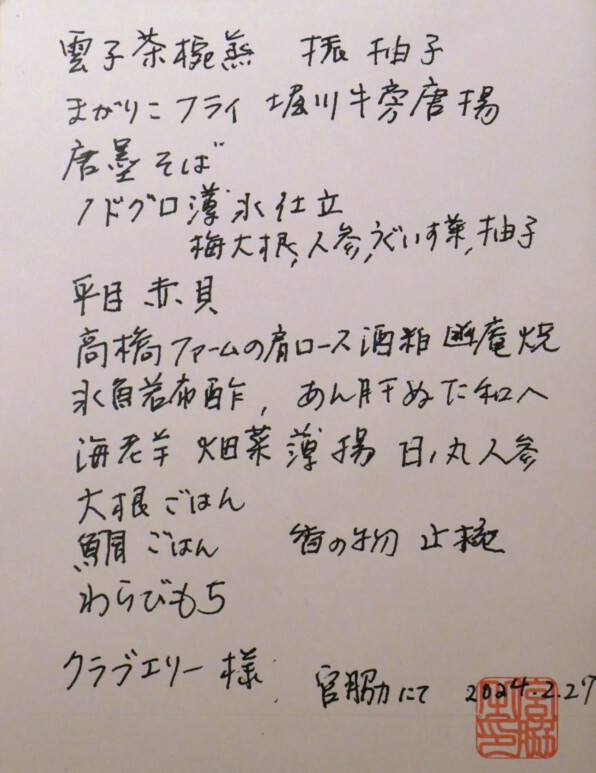 雲子茶椀蒸 振柚子
まがりこフライ 堀川牛旁唐揚
唐墨そば
ノドグロ薄氷仕立
梅大根、人参、うぐいす菜、柚子
平目 赤貝
高橋ファームの肩ロース酒粕幽庵焼
氷魚若布酢, あん肝ぬた和へ
海老芋 畑菜 薄揚 日ノ丸人参
大根ごはん
鯛ごはん 香の物 止椀
わらびもち
クラブエリー様
宮脇にて 2024.2.27